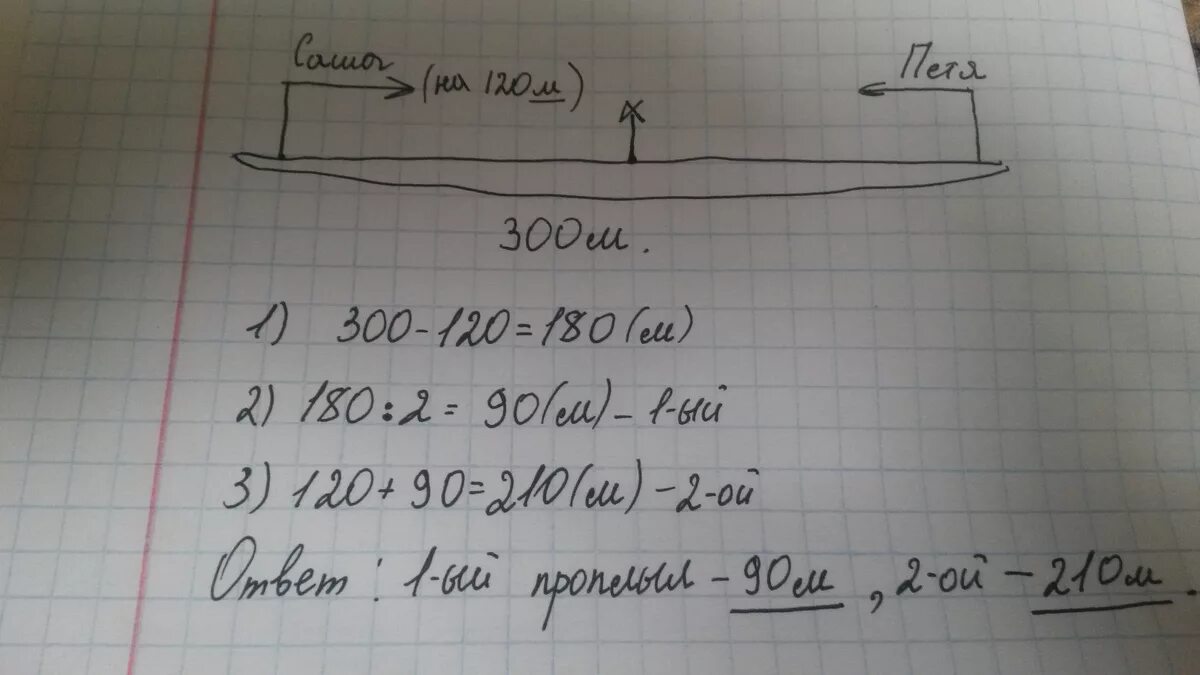 Саша
(на 120м)
Петя
300м.
1) 300-120=180(м)
2) 180:2= 90(м)- 1-ый
3) 120+90=210(м)-2-ой
Ответ: 1-ый проплыл - 90м, 2-ой - 210м.